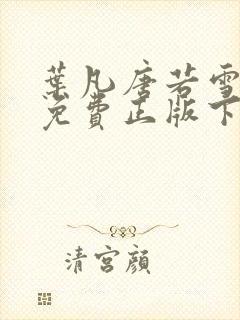 葉凡唐若雪
免費正版下
清宮顏